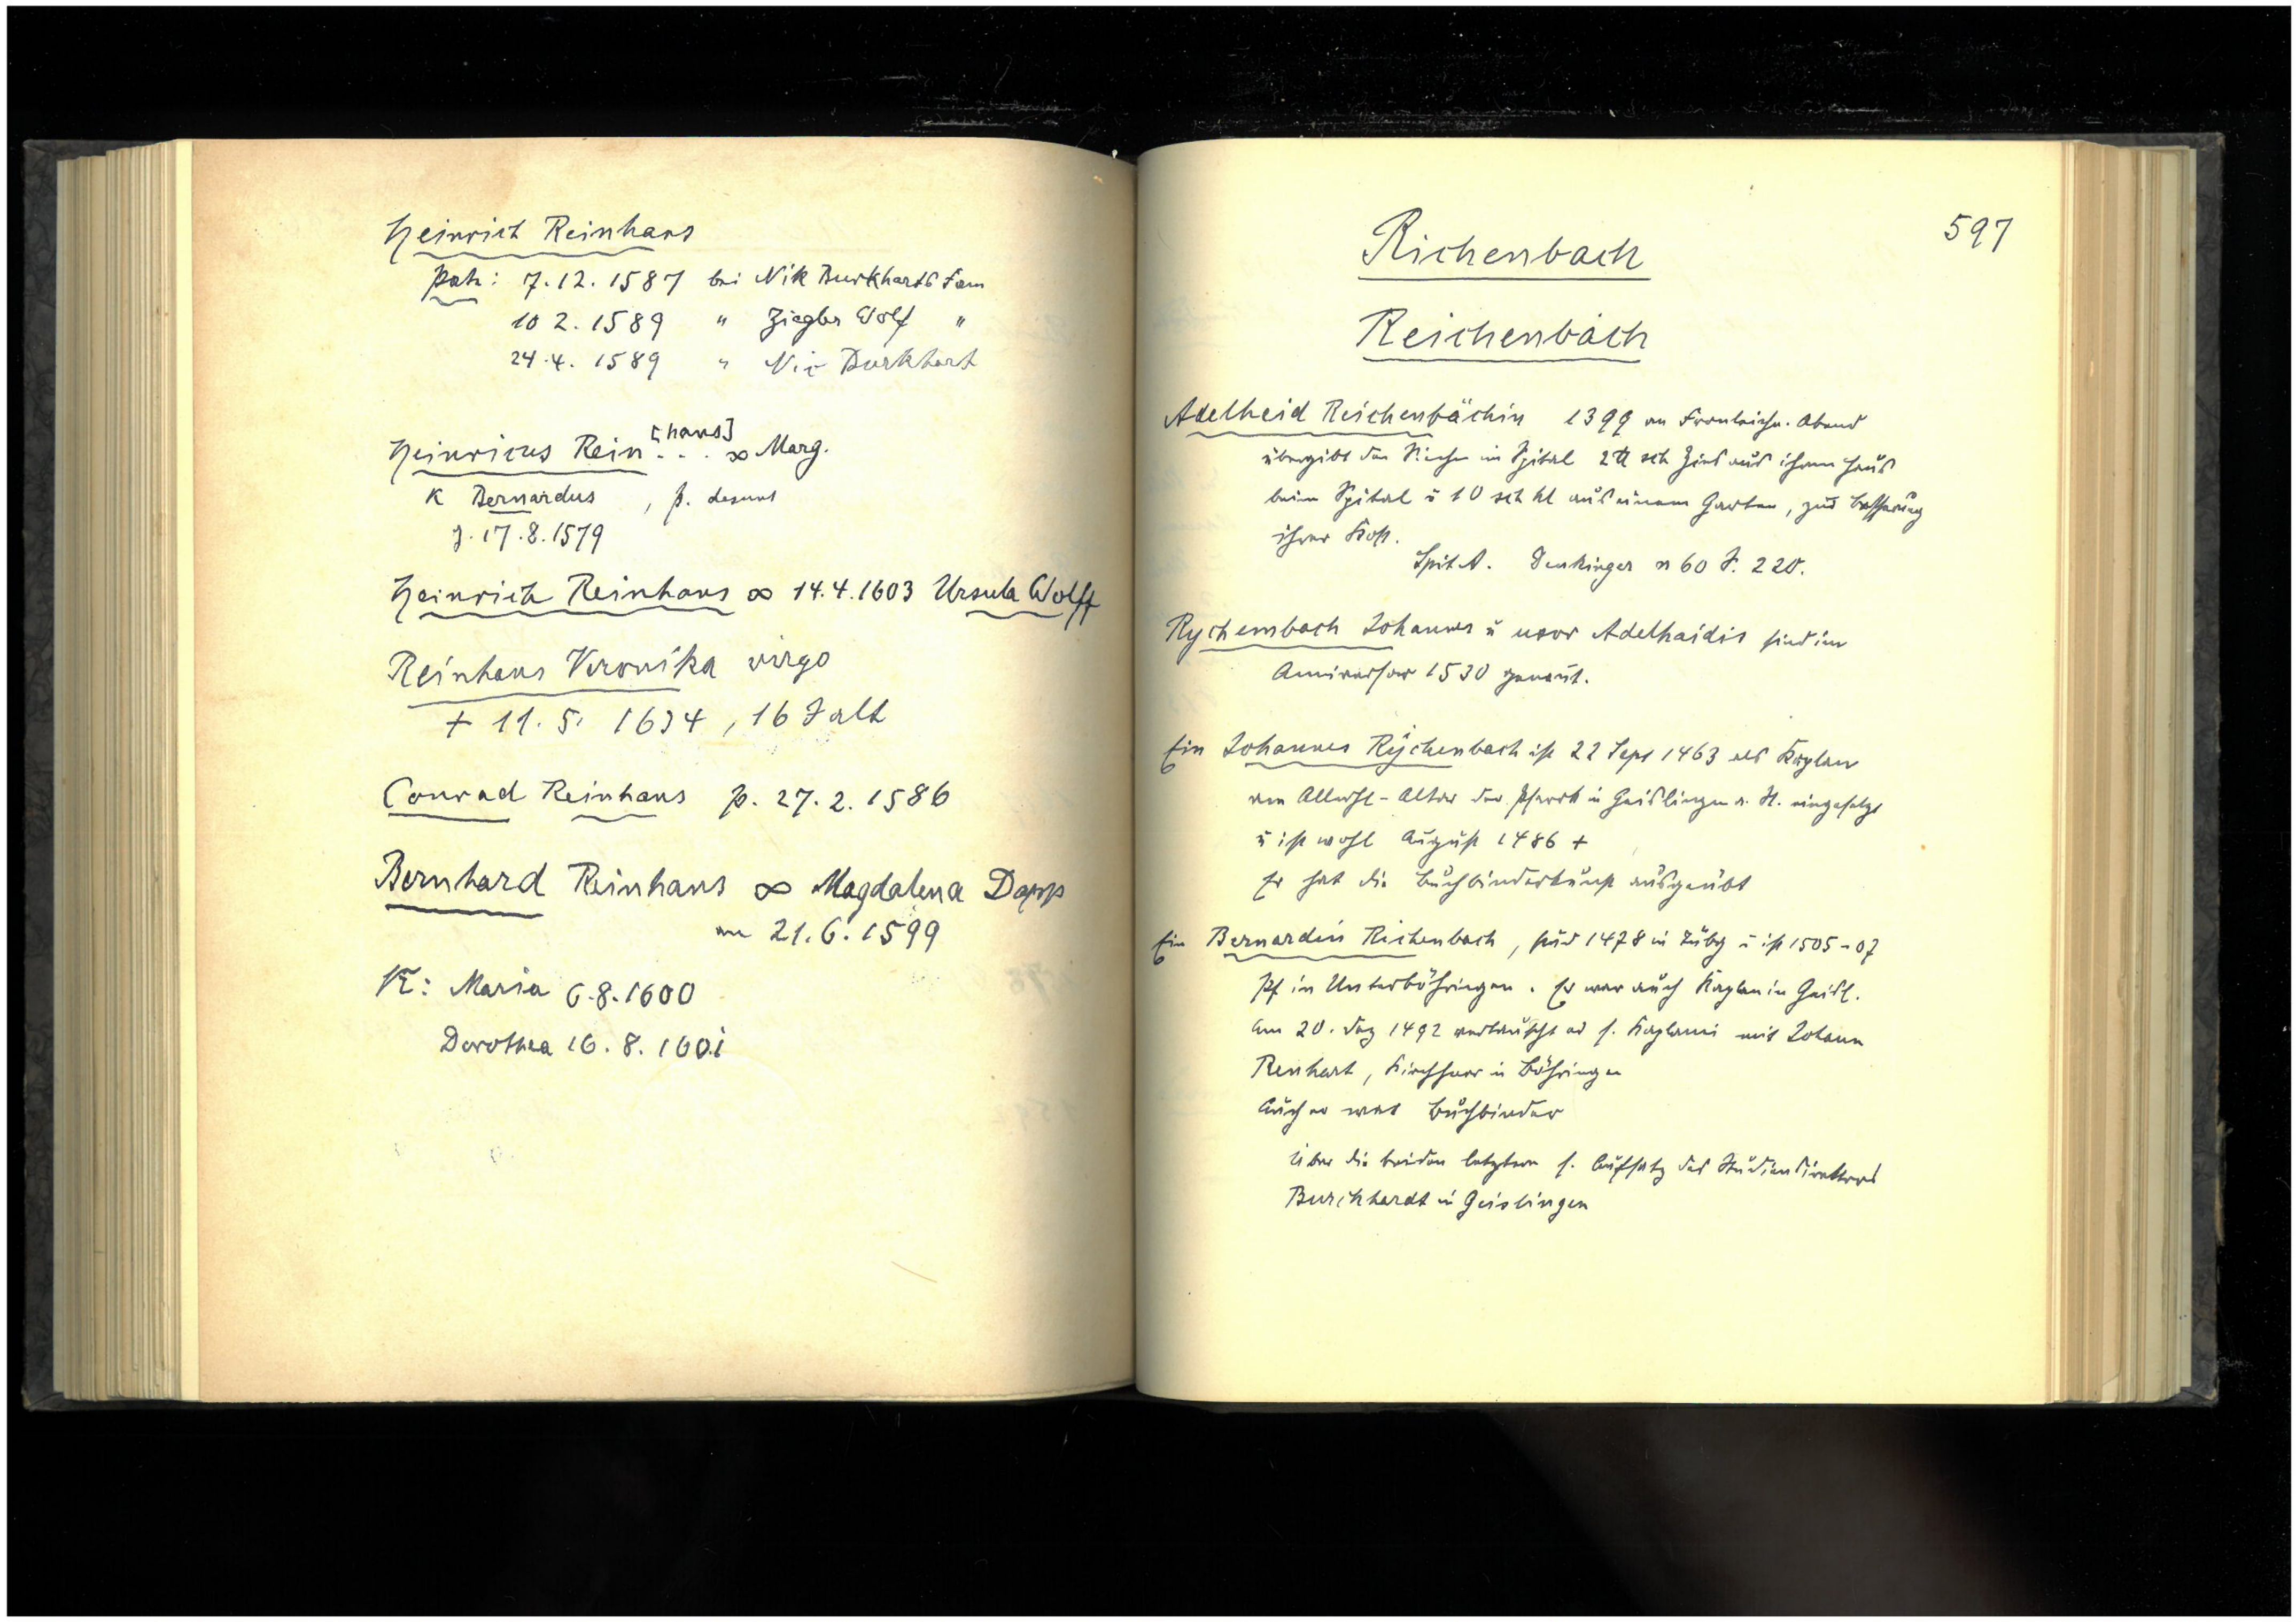 Heinrich Reinhans
Pate: 7.12.1587 bei Nik Burkharts Fam
10 2. 1589 " Ziegler Wolf "
24.4. 1589 " Nic Burkhart
Heinricus Rein[hans]... ∞ Marg.
K Bernardus , p. desunt
g. 17.8.1579
Heinrich Reinhans ∞ 14.4.1603 Ursula Wolff
Reinhans Veronika virgo
+ 11. 5. 1634, 16 J alt
Conrad Reinhans p. 27.2.1586
Bernhard Reinhans ∞ Magdalena Dapp
am 21.6.1599
K: Maria 6.8.1600
Dorothea 16.8.1601
597
Richenbach
Reichenbach
Adelheid Reichenbächin 1399 an Fronleichn. Abend
übergibt den Siechen im Spital 2 ℔ sch Zins aus ihrem Haus
beim Spital u 10 sch hl aus einem Garten, zur Besserung
ihrer Kost.
Spit A. Denkinger n 60 S. 220.
Rychembach Johannes u uxor Adelhaidis sind im
Anniversar 1530 genannt.
Ein Johannes Rÿchenbach ist 22 Sept 1463 als Kaplan
am Allerhl-Altar der Pfarrk in Geislingen a. St. eingesetzt
u ist wohl August 1486 +
Er hat die Buchbinderkunst ausgeübt
Ein Bernardin Richenbach, stud 1478 in Tübg u ist 1505-07
Pf in Unterböhringen. Er war auch Kaplan in Geisl.
Am 20. Dez 1492 vertauscht er s. Kaplanei mit Johann
Renhart, Kirchherr in Böhringen
Auch er war Buchbinder
Über die beiden letztern s. Aufsatz des Studiendirektors
Burckhardt in Geislingen